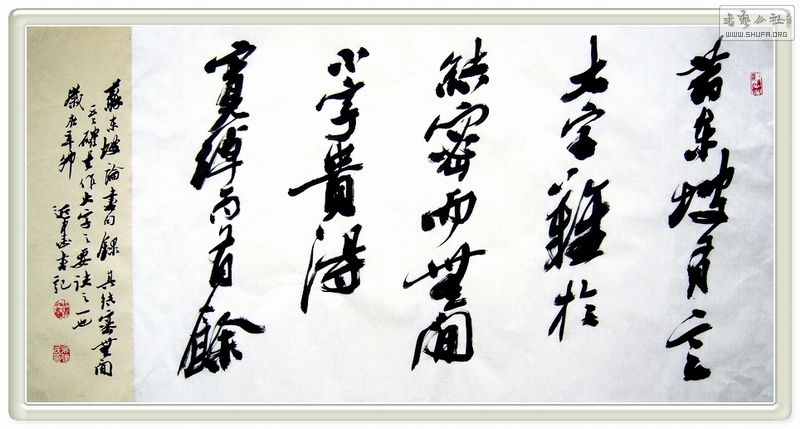 書藝公社
WWW.SHUFA.ORG
昔東坡有言
大字難於
結密而無間
小字貴得
寬綽而有餘
蘇東坡論書句錄 其結密無間
云云確是作大字之要訣之一也
歲在
書記